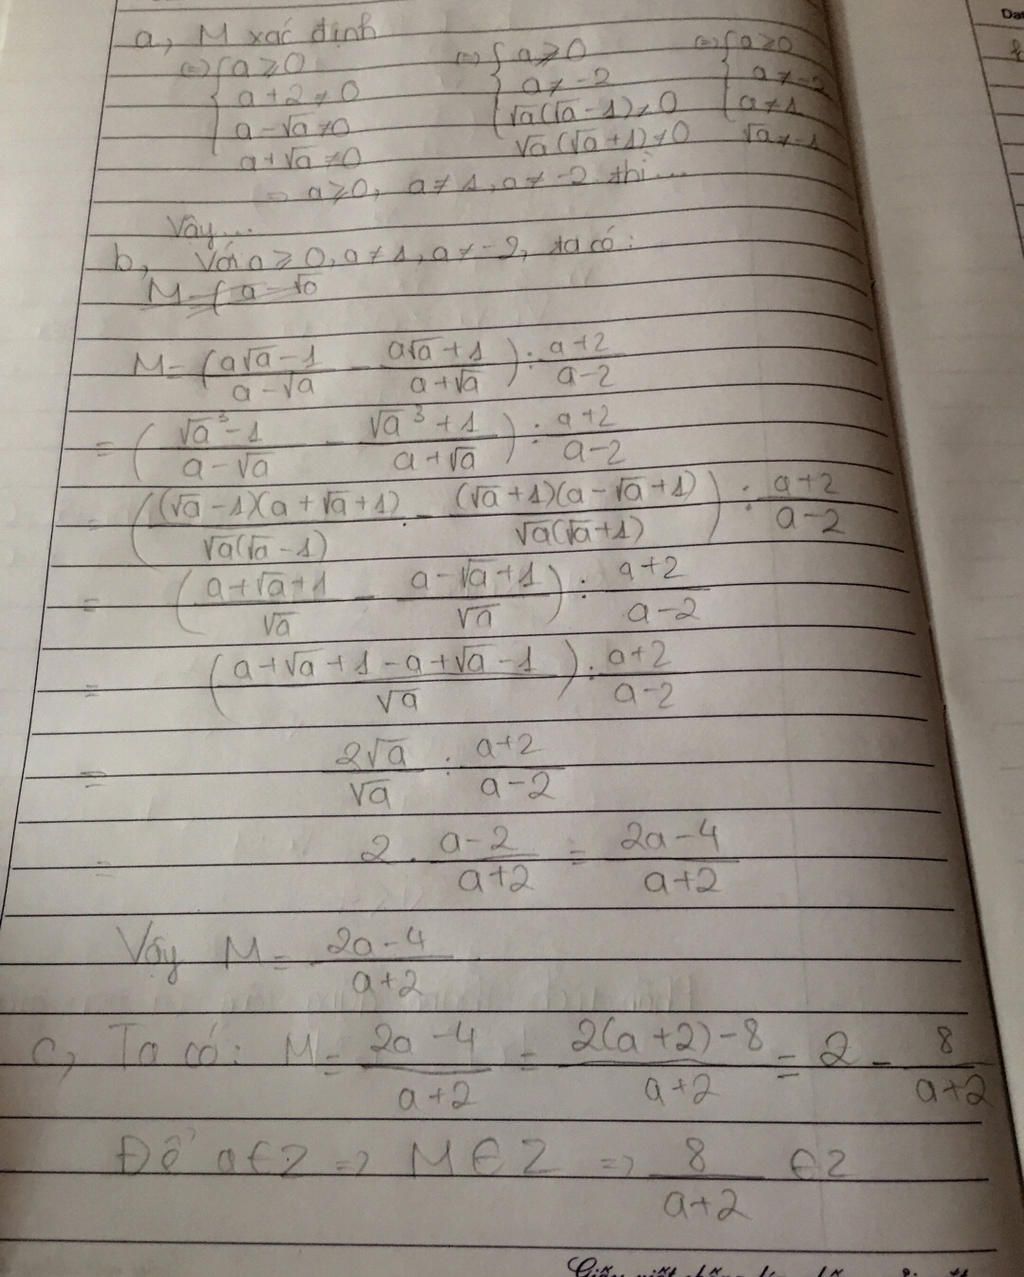 a, M xác định
(=) { a ≥ 0 (=) { a ≥ 0 (=) { a ≥ 0
a + 2 ≠ 0 a ≠ -2 a ≠ -2
a - √a ≠ 0 √a(√a - 1) ≠ 0 a ≠ 1
a + √a ≠ 0 √a(√a + 1) ≠ 0 √a ≠ -1
= a ≥ 0, a ≠ 1, a ≠ -2 thì...
Vậy...
b, Với a ≥ 0, a ≠ 1, a ≠ -2, ta có:
M = ( a - √a
M = ( (a√a - 1)/(a - √a) - (a√a + 1)/(a + √a) ) : (a + 2)/(a - 2)
= ( (√a³ - 1)/(a - √a) - (√a³ + 1)/(a + √a) ) : (a + 2)/(a - 2)
= ( ((√a - 1)(a + √a + 1))/(√a(√a - 1)) - ((√a + 1)(a - √a + 1))/(√a(√a + 1)) ) : (a + 2)/(a - 2)
= ( (a + √a + 1)/√a - (a - √a + 1)/√a ) : (a + 2)/(a - 2)
= ( (a + √a + 1 - a + √a - 1)/√a ) : (a + 2)/(a - 2)
= 2√a/√a : (a + 2)/(a - 2)
= 2 . (a - 2)/(a + 2) = (2a - 4)/(a + 2)
Vậy M = (2a - 4)/(a + 2)
c, Ta có: M = (2a - 4)/(a + 2) = (2(a + 2) - 8)/(a + 2) = 2 - 8/(a + 2)
Để a ∈ Z => M ∈ Z => 8/(a + 2) ∈ Z